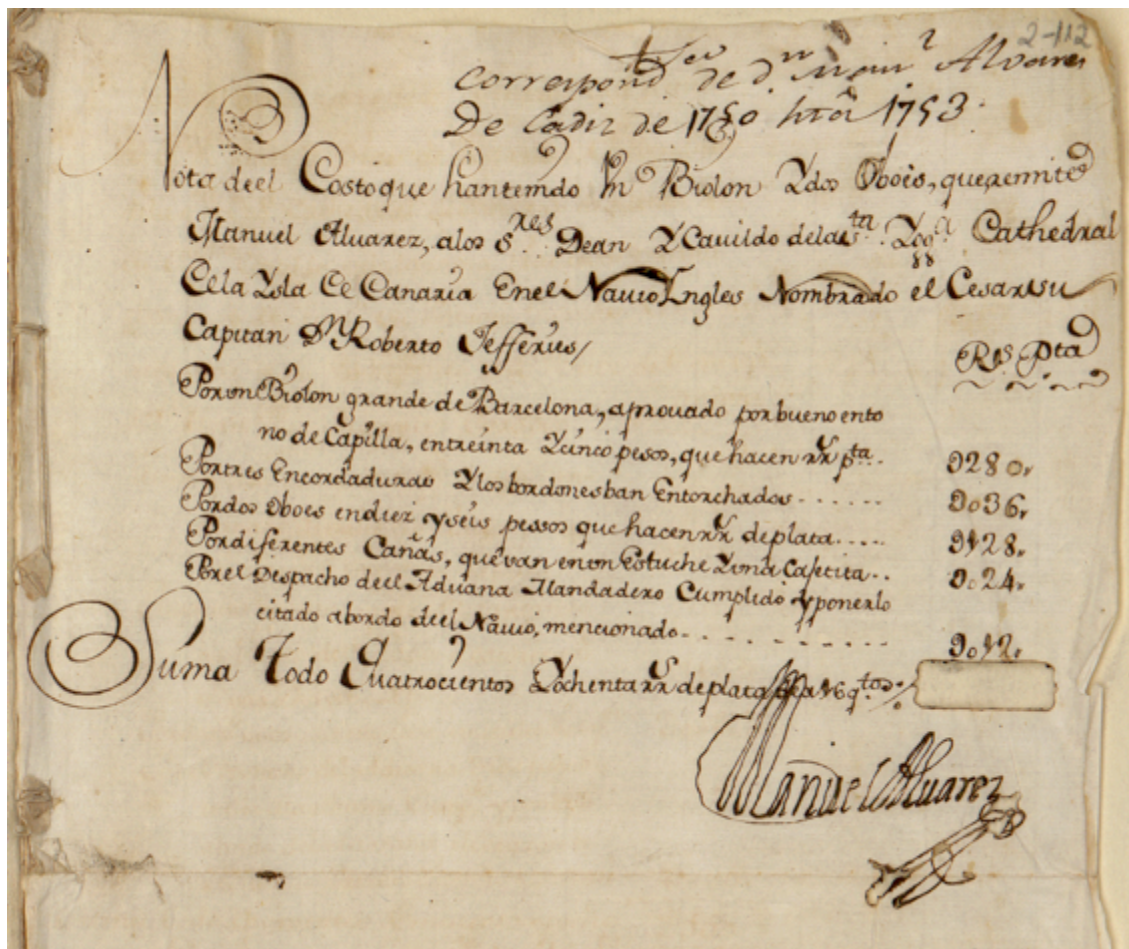 2-112
Correspond.ª de d.n Man.l Alvares
De Cadiz de 1750 htã 1753.
Nota deel Costo que han tenido Vn Biolon Y dos Oboès, que remite
Manuel Aluarez, alos S.res Dean Y Cauildo dela S.ta Ygª Cathedral
De la Ysla De Canaria En el Nauio Yngles Nombrado el Cesar su
Capitan Dn Roberto Jefferies /
R.s Pta
Por vn Biolon grande de Barcelona, aprouado por bueno en to
no de Capilla, en treinta Y cinco pesos, que hacen rr.s pta.. 280,,
Por tres Encordaduras Y los bordones ban Entorchados ...... 036,,
Por dos Oboes en diez y seis pessos que hacen rr.s de plata..... 128,,
Por diferentes Cañas, que van en vn Estuche Y vna Caxetita.. 024,,
Por el Despacho deel Aduana Mandadero Cumplido y ponerlo
citado abordo deel Nauio, mencionado.............. 012,,
Suma Todo Quatrocientos Y ochenta rr.s de plata de a 16 q.tos
Manuel Aluarez